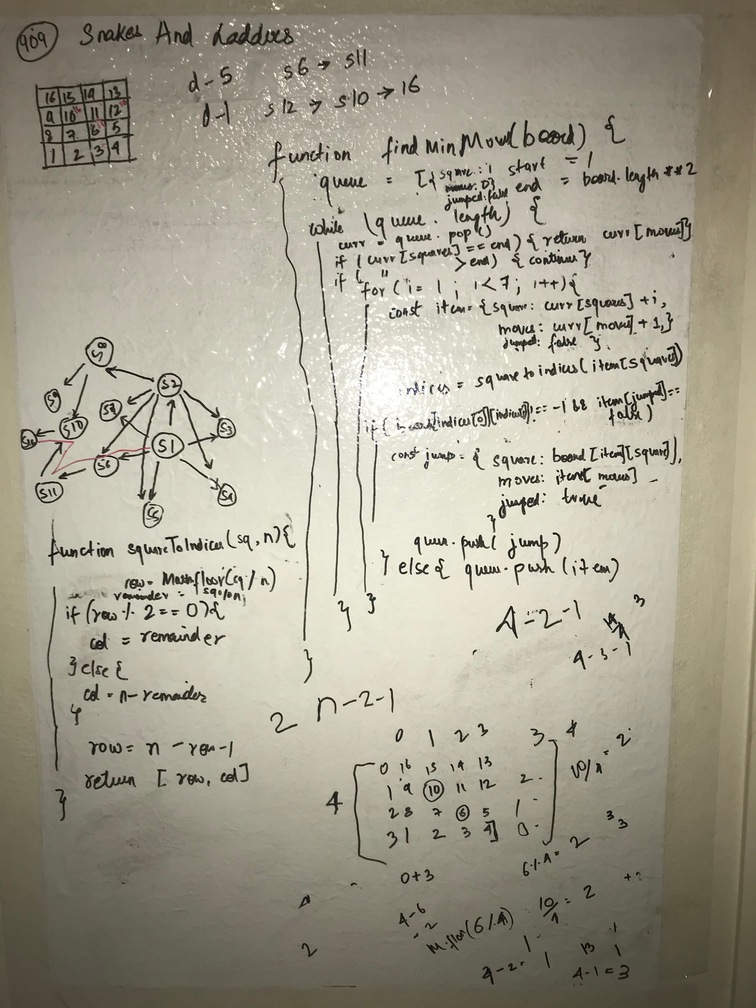 909 Snakes And Ladders
16 15 14 13
9 10 11 12
8 7 6 5
1 2 3 4
d-5 s6 → s11
d-1 s12 → s10 → 16
function findMinMoves(board) {
queue = [{square: 1 start = 1
moves: 0} end = board.length ** 2
jumped: false
while (queue.length) {
curr = queue.pop()
if (curr[squares] == end) { return curr[moves]}
if ( " > end) { continue }
for (i = 1 ; i < 7 ; i++) {
const item = {square: curr[squares] + i,
moves: curr[moves] + 1,}
jumped: false };
indices = square to indices(item[square])
if ( board[indices[0]][indices[1]] == -1 && item[jumped] ==
false)
const jump = { square: board[item][square],
moves: item[moves]
jumped: true
}
queue.push( jump )
} else { queue.push (item)
} }
}
S8
S2
S9
S10
S1
S3
S6
S11
S5
S4
function squareToIndices(sq, n) {
row = Math.floor(sq / n)
remainder = sq % n
if (row % 2 == 0) {
col = remainder
} else {
col = n - remainder
}
row = n - row - 1
return [row, col]
}
4 = 2 - 1
4 - 3 - 1
2 n-2-1
0 1 2 3 3 4
0 16 15 14 13
1 9 10 11 12 2
2 8 7 6 5 1
3 1 2 3 4] 0
4
10/4 = 2
0+3
6 % 4 = 2
4-6
-2
M.floor(6/4)
10/4 = 2
2
4-2=
13 1
4-1=3